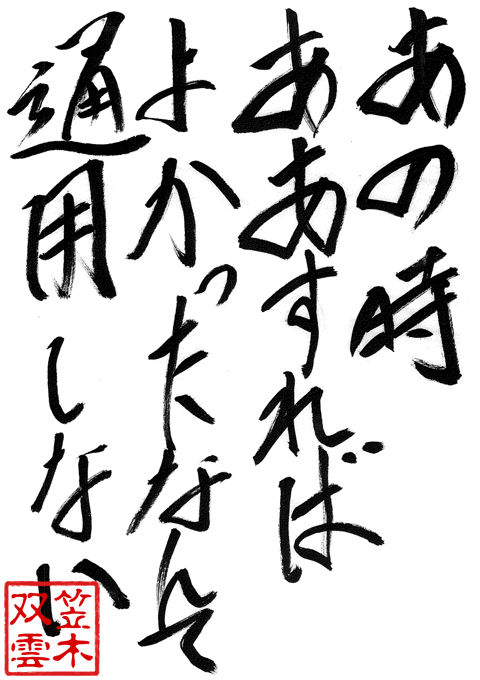 あの時
ああすれば
よかったなんて
通用しない
笠木
双雲